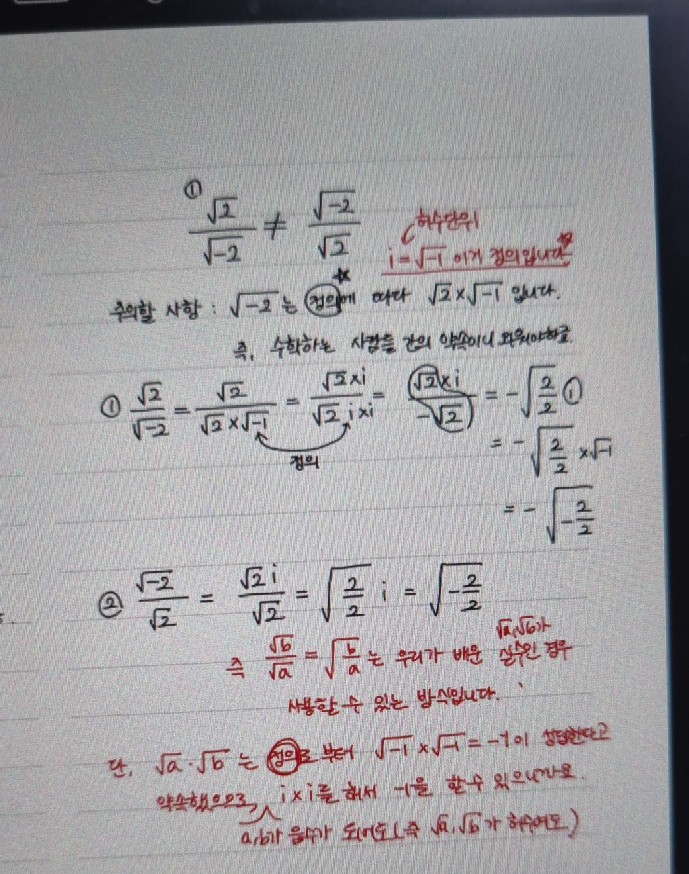 ①
√2/√-2 ≠ √-2/√2
허수단위
i = √-1 이게 정의입니다*
주의할 사항 : √-2 는 정의*에 따라 √2 × √-1 입니다.
즉, 수학하는 사람들 간의 약속이니 외워야하고
① √2/√-2 = √2/(√2 × √-1) = (√2 × i)/(√2 i × i) = (√2 × i)/-√2 = -√(2/2) ①
정의
= -√(2/2) × √-1
= -√(-2/2)
② √-2/√2 = √2 i/√2 = √(2/2) i = √(-2/2)
√a, √b가
즉 √b/√a = √(b/a) 는 우리가 배운 실수인 경우
사용할 수 있는 방식입니다.
단, √a · √b 는 정의로 부터 √-1 × √-1 = -1이 성립한다고
약속했으므로, i × i를 해서 -1을 할 수 있으니까요.
a, b가 음수가 되어도 (즉 √a, √b 가 허수여도)